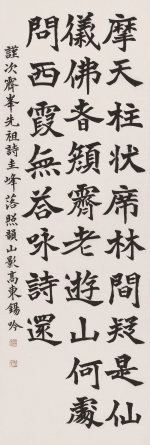 摩天柱状席林間疑是仙
儀佛頽霽老遊山何處
問西霞無答咏詩還
謹次霽峯先祖詩圭峰落照韻山影高東錫吟